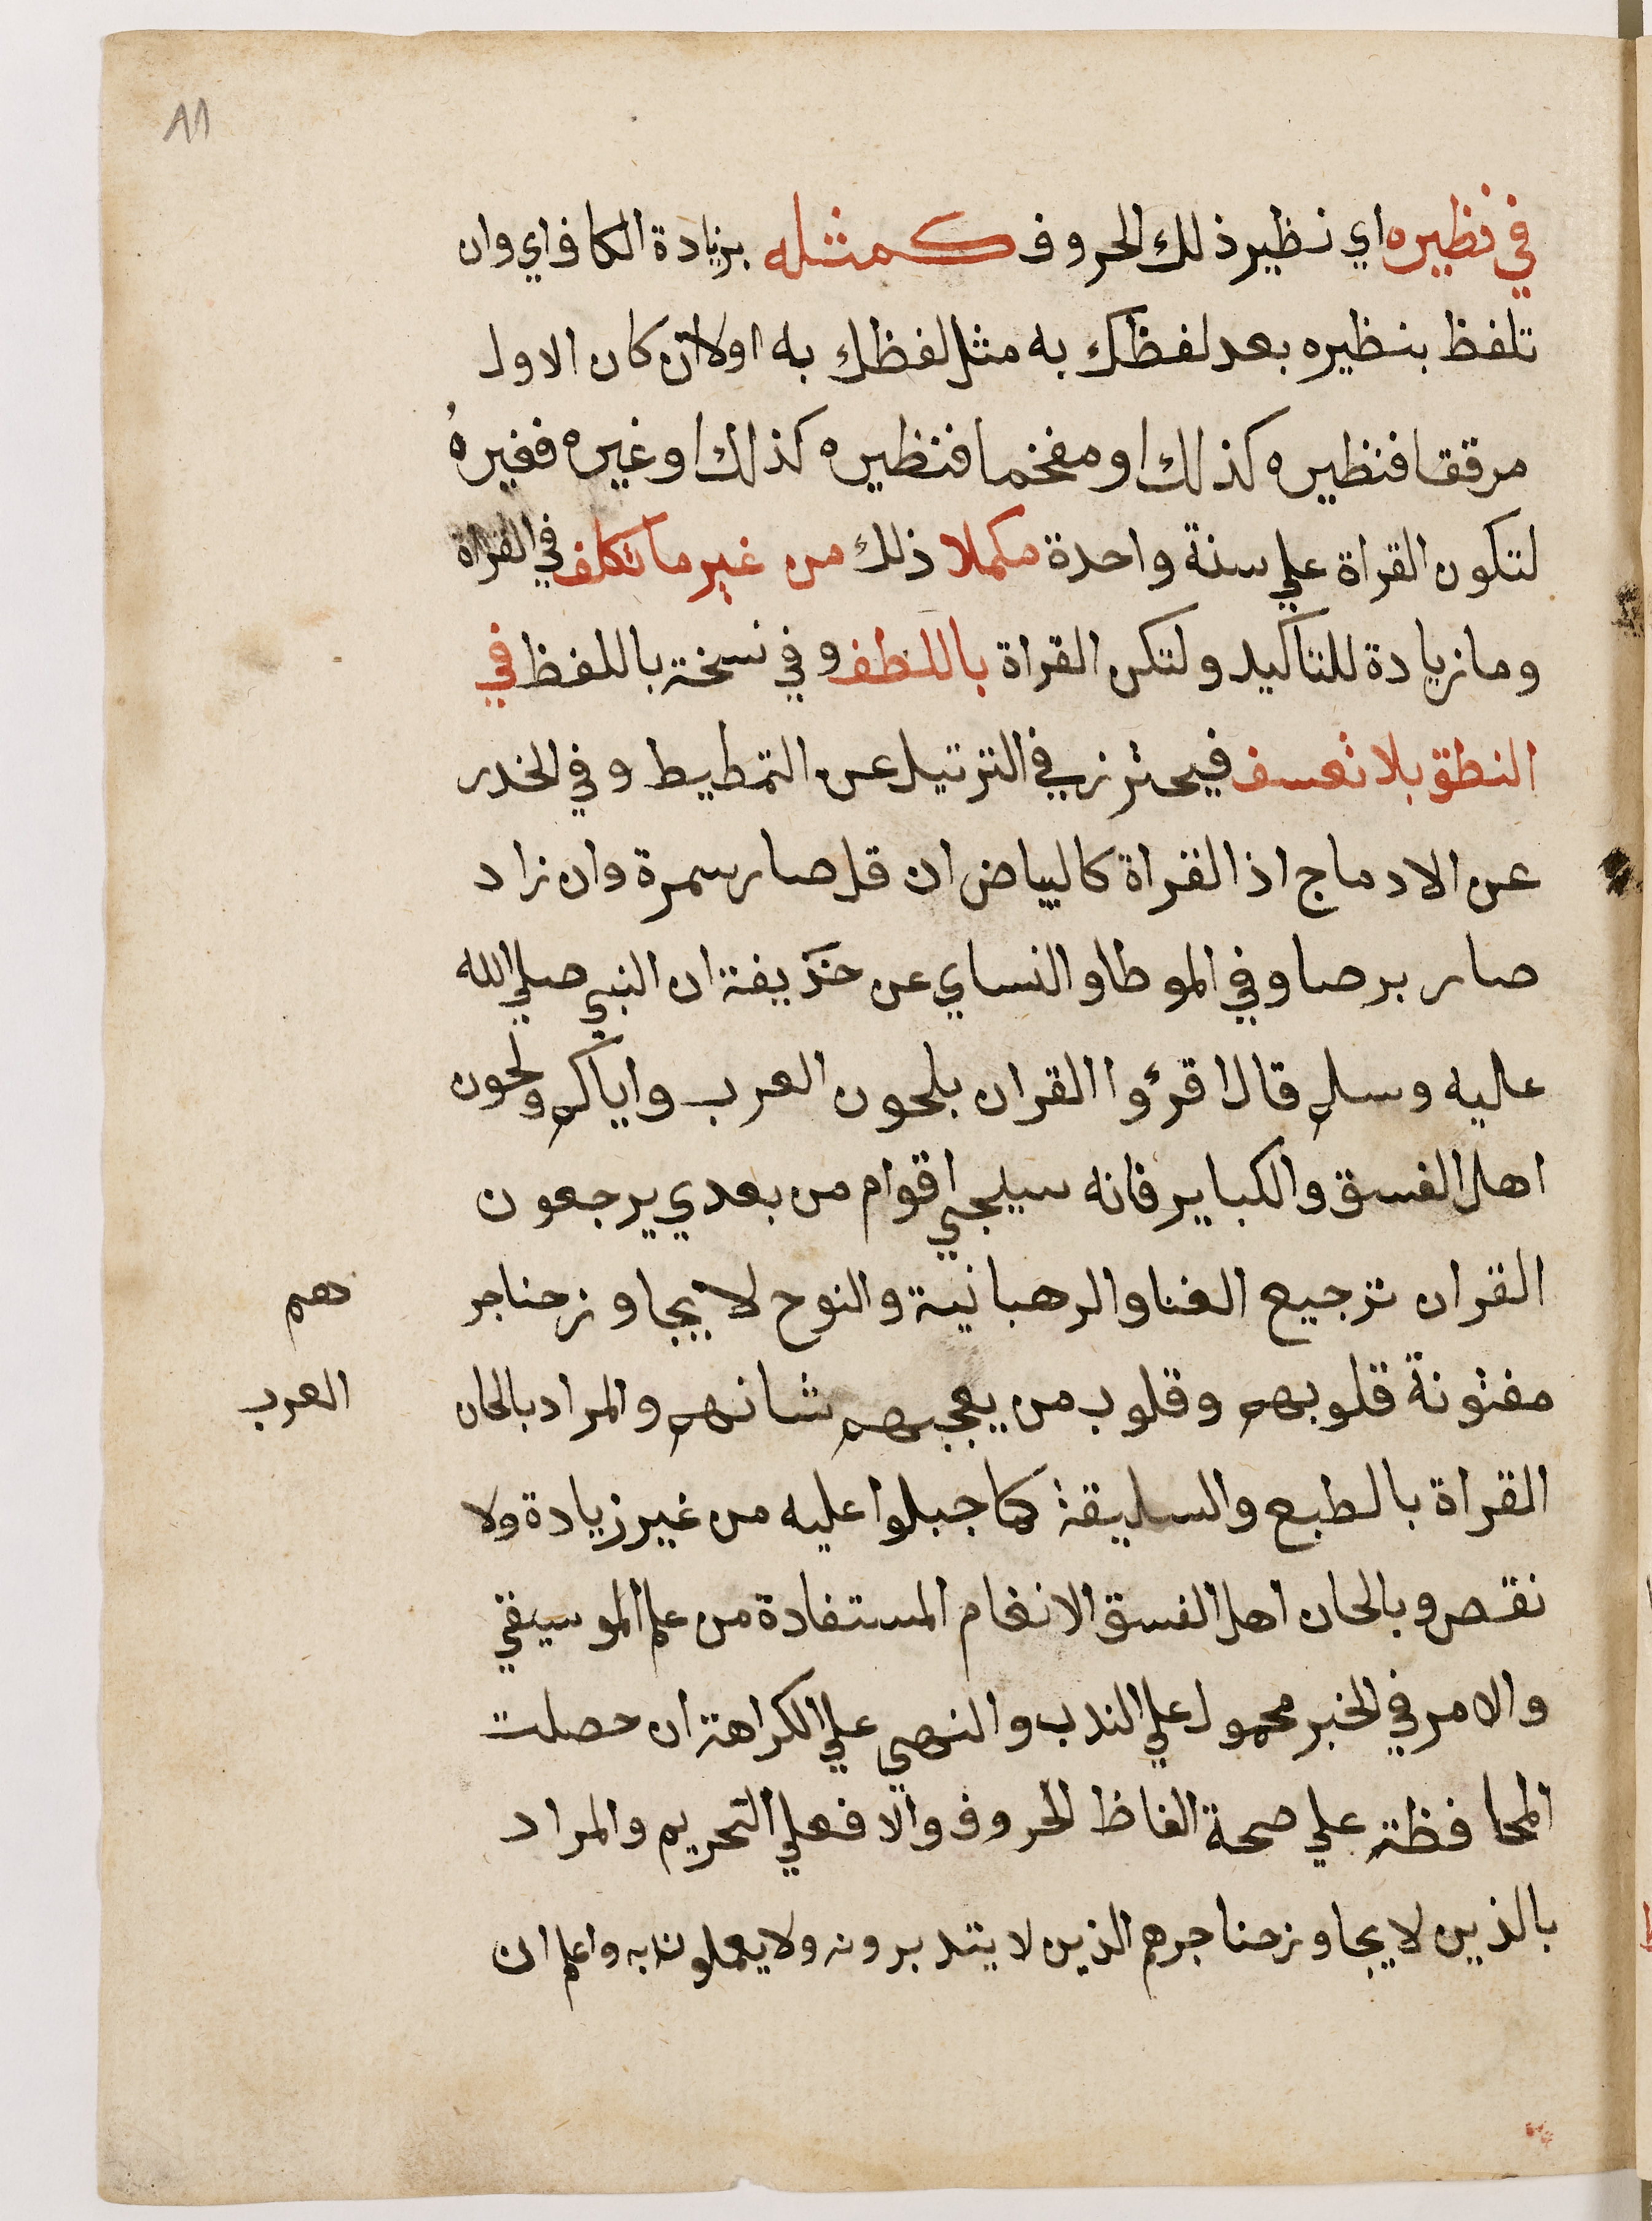 ١١
في نظيره اي نظير ذلك الحروف كمثله بزيادة الكاف اي وان
تلفظ بنظيره بعد لفظك به مثل لفظك به اولا ان كان الاول
مرققا فنظيره كذلك او مفخما فنظيره كذلك او غيره فغيرهُ
لتكون القراة علي سنة واحدة مكملا ذلك من غير ما تكلف في القراة
وما زيادة للتاكيد ولتكن القراة باللطف وفي نسخة باللفظ في
النطق بلا تعسف فيحترز في الترتيل عن التمطيط وفي الخدر
عن الادماج اذ القراة كالبياض ان قل صار سمرة وان زاد
صار برصا وفي الموطا والنساي عن حذيفة ان النبي صلي الله
عليه وسلم قال اقرؤا القران بلحون العرب واياكم ولحون
اهل الفسق والكباير فانه سيجي اقوام من بعدي يرجعون
القران ترجيع الغنا والرهبانية والنوح لا يجاوز حناجر هم
مفتونة قلوبهم وقلوب من يعجبهم شانهم والمراد بالحان العرب
القراة بالطبع والسليقة كما جبلوا عليه من غير زيادة ولا
نقص وبالحان اهل الفسق الانغام المستفادة من علم الموسيقي
والامر في الخبر محمول علي الندب والنهي علي الكراهة ان حصلت
المحافظة علي صحة الفاظ الحروف والا فعلي التحريم والمراد
بالذين لا يجاوز حناجرهم الذين لا يتدبرونه ولا يعملون به واعلم ان